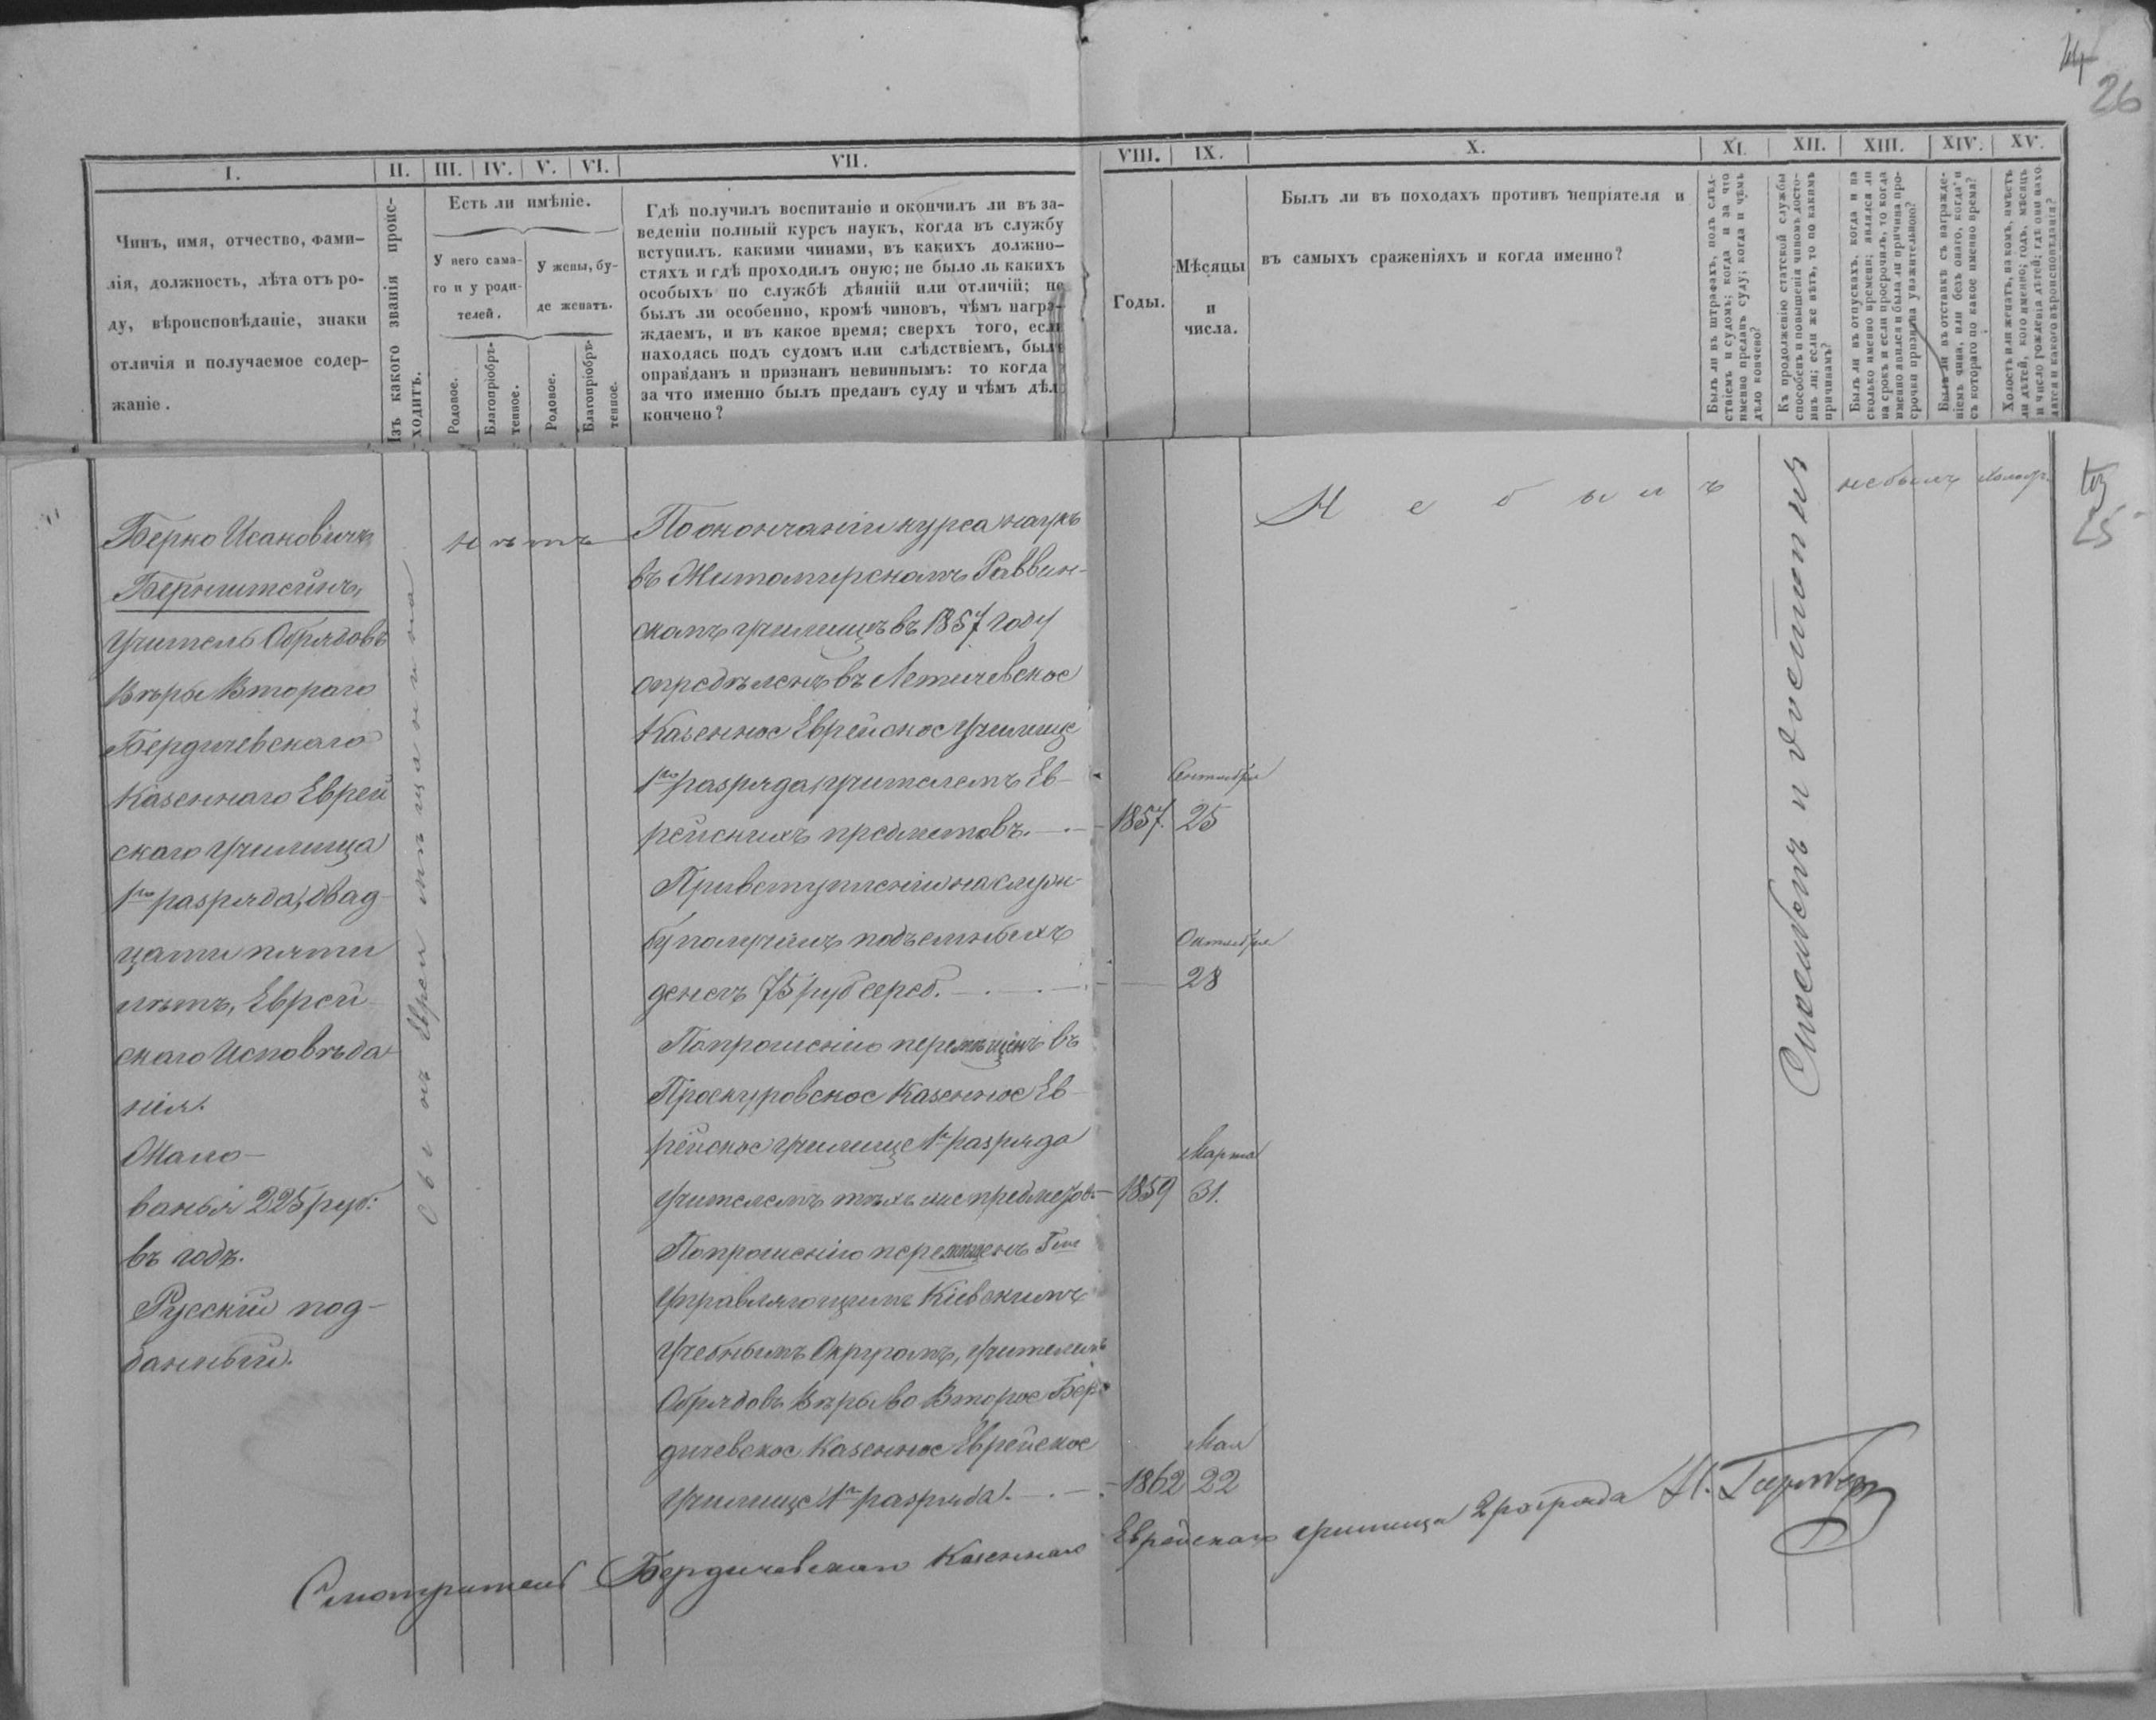 44
26
I.
II.
III.
IV.
V.
VI.
VII.
VIII.
IX.
X.
XI.
XII.
XIII.
XIV.
XV.
Чинъ, имя, отчество, фами-
лія, должность, лѣта отъ ро-
ду, вѣроисповѣданіе, знаки
отличія и получаемое содер-
жаніе.
Изъ какого званія проис-
ходитъ.
Есть ли имѣніе.
У него сама-
го и у роди-
телей.
У жены, бу-
де женатъ.
Родовое.
Благопріобрѣ-
тенное.
Родовое.
Благопріобрѣ-
тенное.
Гдѣ получилъ воспитаніе и окончилъ ли въ за-
веденіи полный курсъ наукъ, когда въ службу
вступилъ. какими чинами, въ какихъ должно-
стяхъ и гдѣ проходилъ оную; не было ль какихъ
особыхъ по службѣ дѣяній или отличій; не
былъ ли особенно, кромѣ чиновъ, чѣмъ награ-
ждаемъ, и въ какое время; сверхъ того, если
находясь подъ судомъ или слѣдствіемъ, былъ
оправданъ и признанъ невиннымъ: то когда
за что именно былъ преданъ суду и чѣмъ дѣло
кончено?
Годы.
Мѣсяцы
и
числа.
Былъ ли въ походахъ противъ непріятеля и
въ самыхъ сраженіяхъ и когда именно?
Былъ ли въ штрафахъ, подъ слѣд-
ствіемъ и судомъ; когда и за что
именно преданъ суду; когда и чѣмъ
дѣло кончено?
Къ продолженію статской службы
способенъ и повышенія чиномъ досто-
инъ ли; если же нѣтъ, то по какимъ
причинамъ?
Былъ ли въ отпускахъ, когда и на
сколько именно времени; являлся ли
на срокъ и если просрочилъ, то когда
именно явился и была ли причина про-
срочки признана уважительною?
Былъ ли въ отставкѣ съ награжде-
ніемъ чина, или безъ онаго, когда и
съ котораго по какое именно время?
Холостъ или женатъ, на комъ, имѣетъ
ли дѣтей, кого именно; годъ, мѣсяцъ
и число рожденія дѣтей; гдѣ они нахо-
дятся и какого вѣроисповѣданія?
Берко Исаковичъ
Бернштейнъ,
Учитель Обрядовъ
Вѣры Втораго
Бердичевскаго
Казеннаго Еврей
скаго училища
1го разряда, двад-
цати пяти
лѣтъ, Еврей
скаго Исповѣда
нія.
Жало-
ванья 225 руб:
въ годъ.
Русскій под-
данный.
нѣтъ
По окончаніи курса наукъ
въ Житомирскомъ Раввин-
скомъ училищѣ въ 1857 году
опредѣленъ въ Летичевское
Казенное Еврейское Училище
1го разряда учителемъ Ев-
рейскихъ предметовъ.
При вступленіи на служ-
бу получилъ подъемныхъ
денегъ 75 руб сереб.
По прошенію перемѣщенъ въ
Проскуровское Казенное Ев-
рейское училище 1го разряда
учителемъ тѣхъ же предметовъ
По прошенію перемѣщенъ Гмъ
Управляющимъ Кіевскимъ
Учебнымъ Округомъ, учителемъ
Обрядовъ Вѣры во Второе Бер-
дичевское Казенное Еврейское
училище 1го разряда.
Сентября
1857. 25
Октября
28
Марта
1859 31.
Мая
1862 22
Не былъ
Способенъ и достоинъ
не былъ
холостъ.
25
Смотритель Бердичевскаго Казеннаго Еврейскаго училища 2 разряда